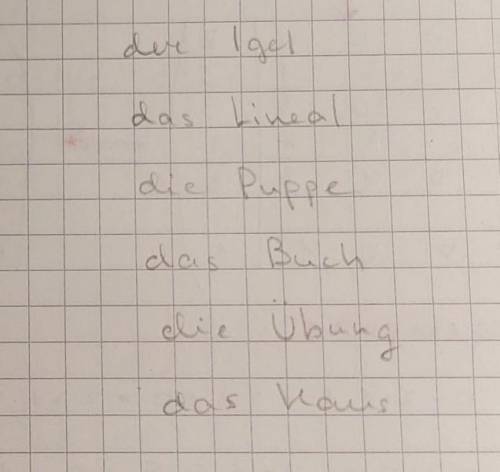 der Igel
das Lineal
die Puppe
das Buch
die Übung
das Haus